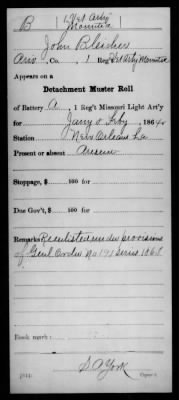 B | 1 L't Art'y | Missouri
John Bleicher
Co., 1 Reg't
Appears on a
Detachment Muster Roll
of Battery A 1 Reg't Missouri Light Art'y
for Jan'y & Feby, 1864
Station New Orleans La
Present or absent
Stoppage, $ 100 for
Due Gov't, $ 100 for
Remarks Reenlisted under provisions
of Genl Order No 191 Series 1863
Book mark:
S A York
Copyist.